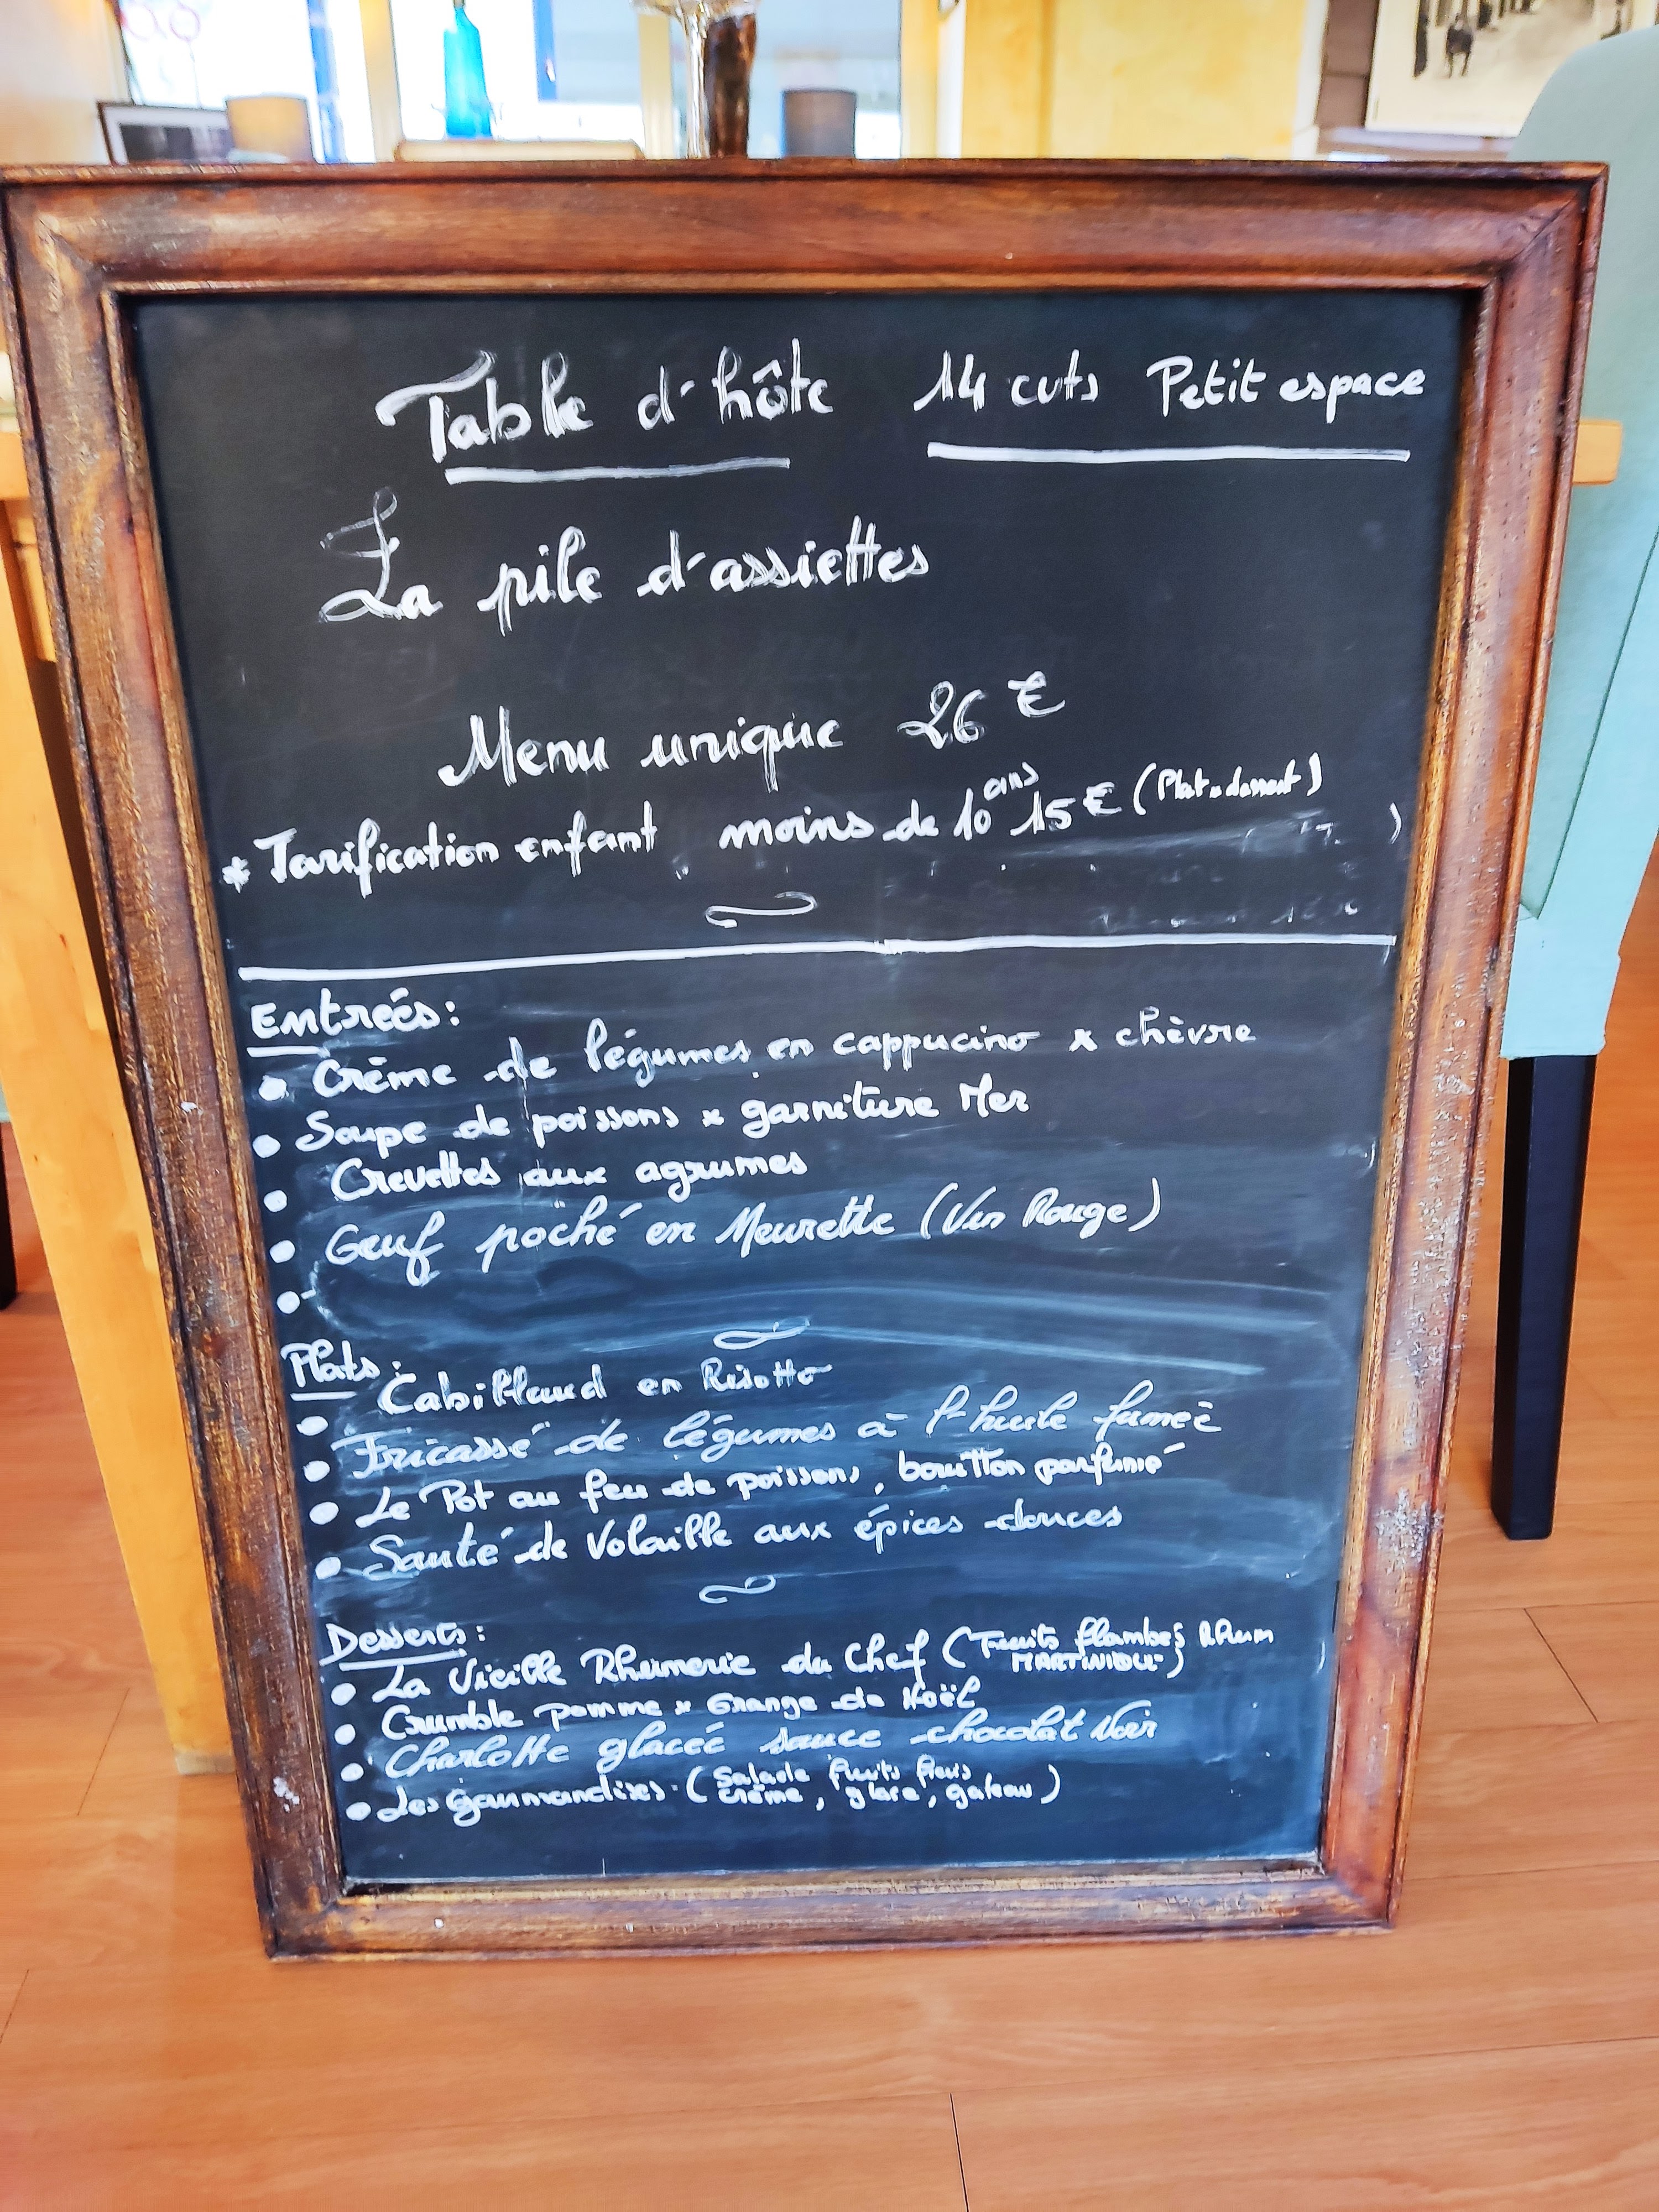 Table d'hôte 14 cuts Petit espace
La pile d'assiettes
Menu unique 26 €
* Tarification enfant moins de 10 ans 15 € (Plat x dessert)
Entreés:
• Crème de légumes en cappucino x chèvre
• Soupe de poissons x garniture Mer
• Crevettes aux agrumes
• Oeuf poché en Meurette (Vin Rouge)
•
Plats:
• Cabillaud en Risotto
• Fricassé de légumes à l'huile fumeè
• Le Pot au feu de poissons, bouillon parfumé
• Sauté de Volaille aux épices douces
Desserts:
• La Vieille Rhumerie du Chef (Fruits flambés Rhum
MARTINIQUE)
• Crumble pomme x Orange de Noël
• Charlotte glaceé sauce chocolat Noir
• Les Gourmandises (Salade fruits frais
crème, glace, gateau)